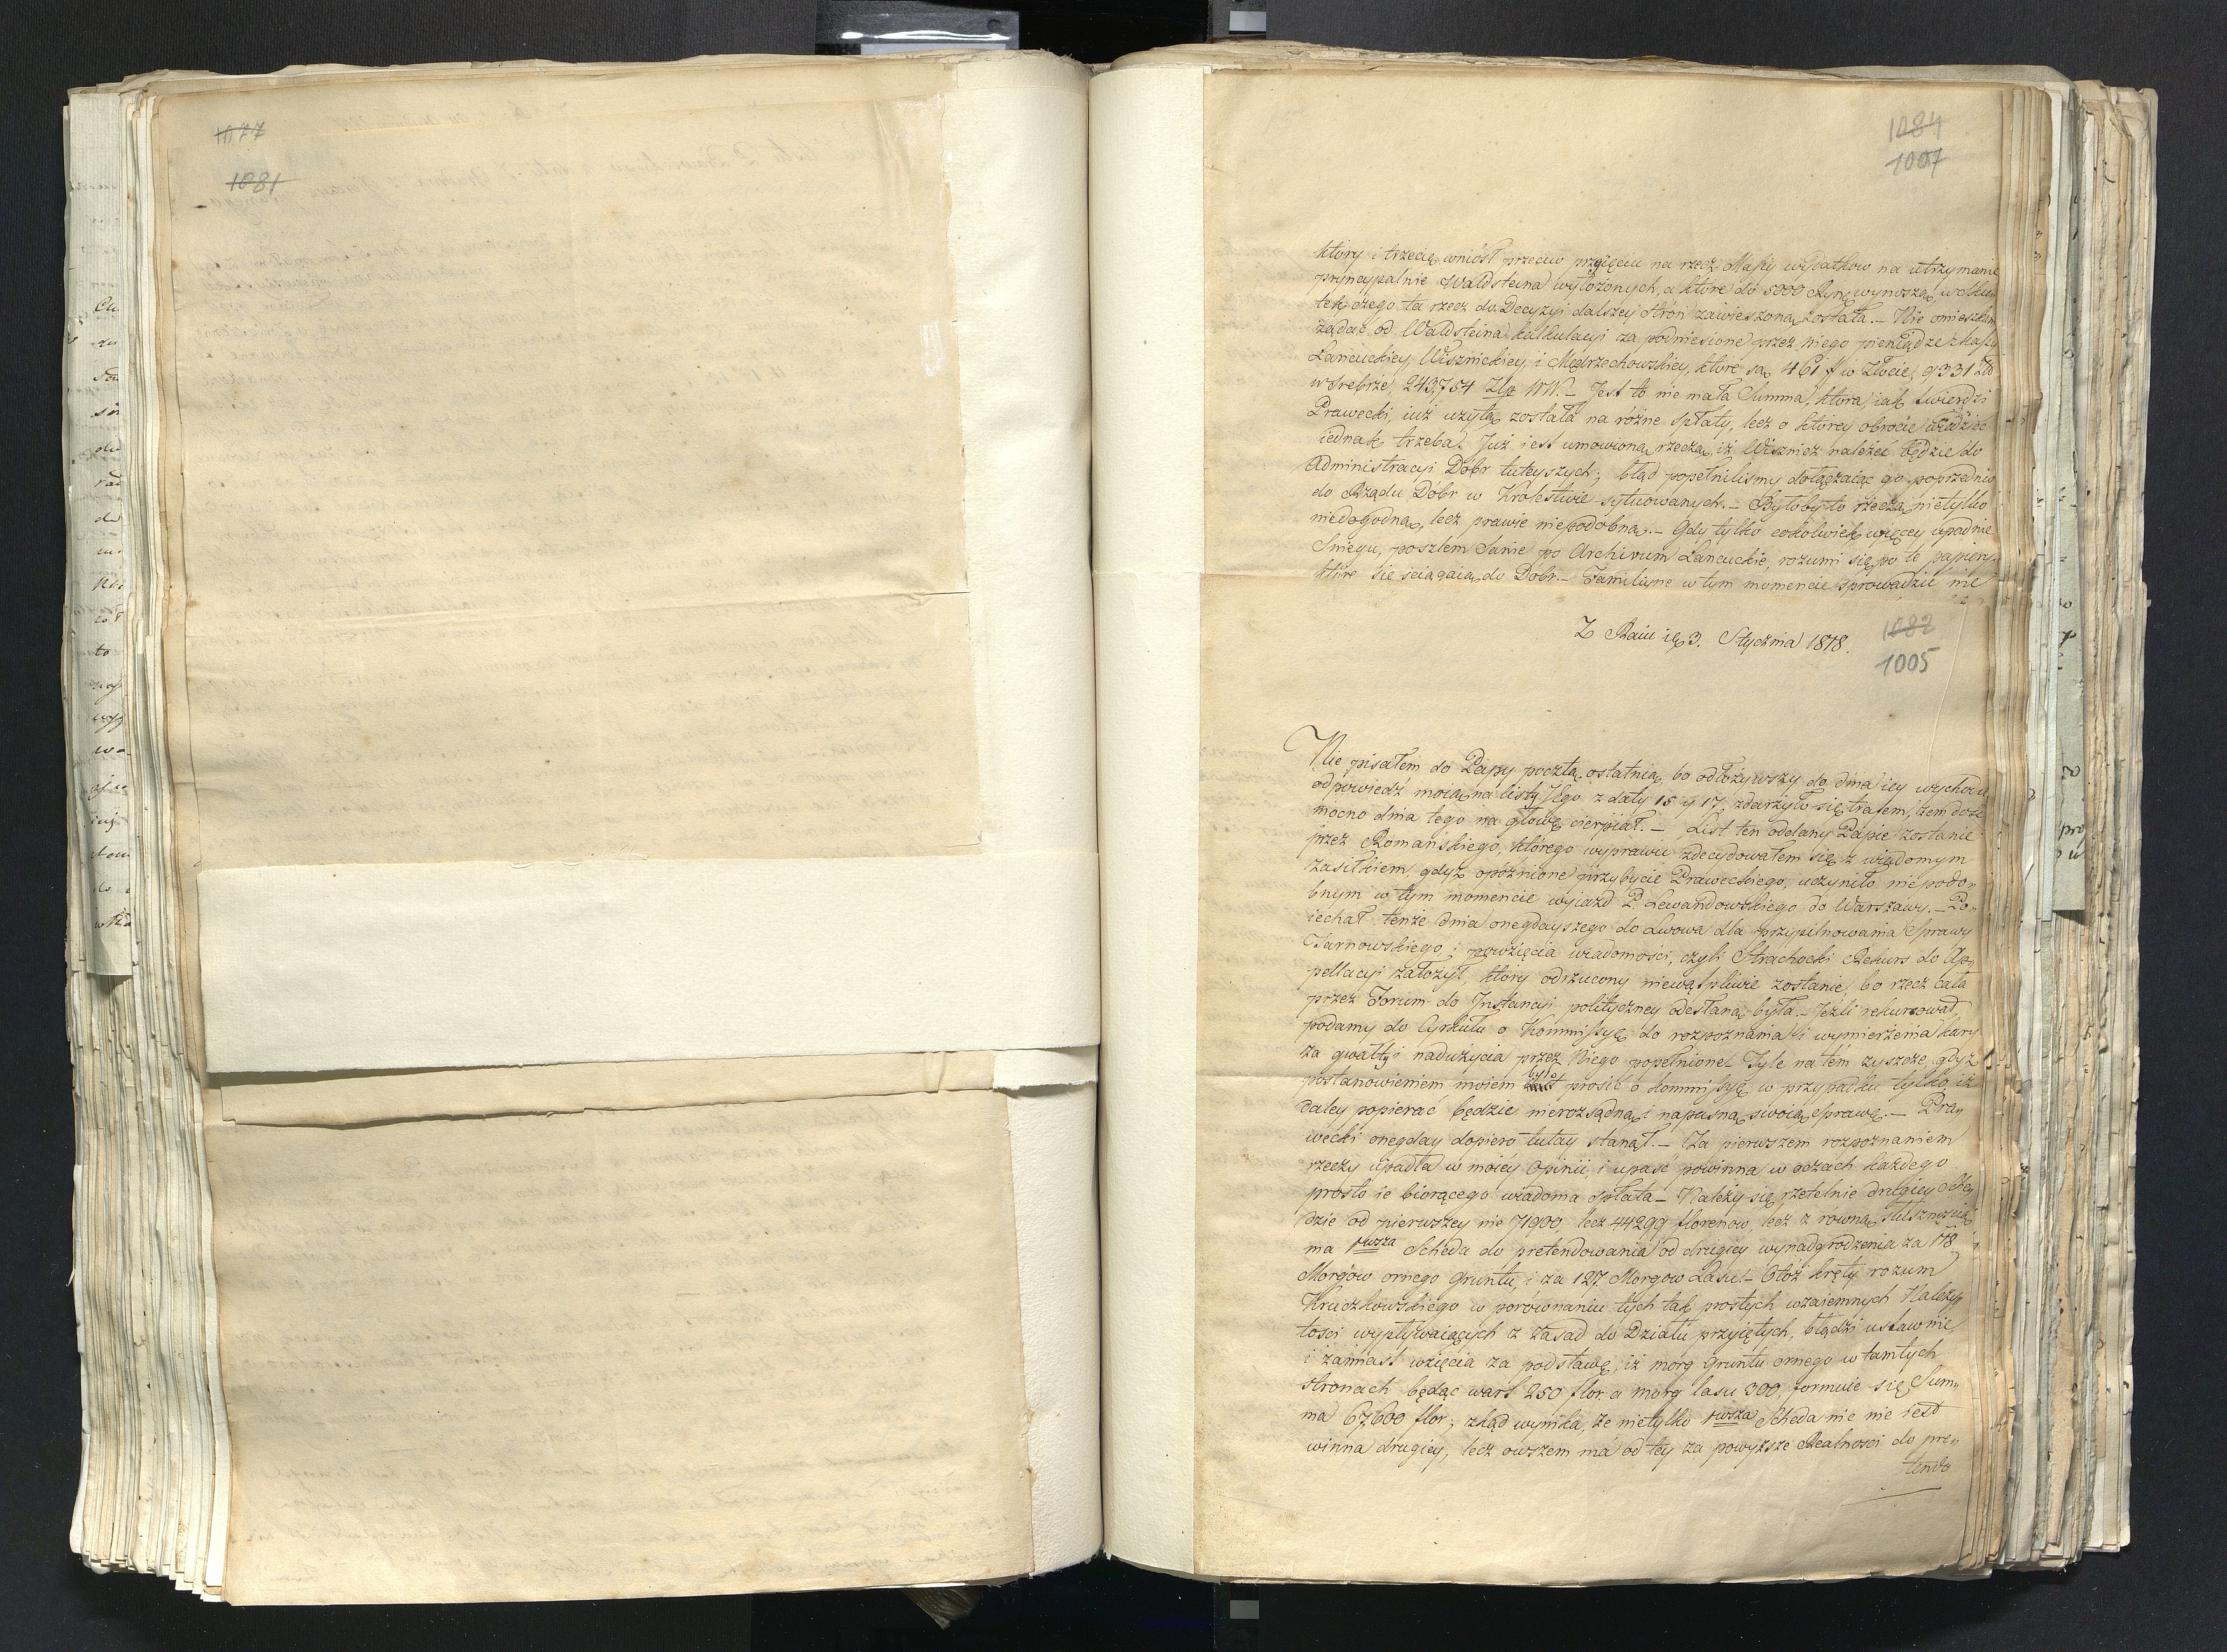 1077
1081
1084
1007
który i trzecią wniósł przeciw przyięciu na rzecz Massy wydatkow na utrzymanie
pryncypalnie Waldsteina wyłożonych, a które do 5000 Ryn. wynoszą, wsku„
tek czego ta rzecz do Decyzyi dalszey Stron zawieszoną została. – Nie omieszkam
żądać od Waldsteina kalkulacyi za podniesione przez niego pieniądze z kassy
Łancuckiey, Wisznickiey, i Mędrzechowskiey, które są 461 # w Złocie, 9331 Zło
w Srebrze, 243,754 Złp WW. – Jest to nie mała Summa, która iak twierdzi
Prawecki, iuż użytą została na różne spłaty, lecz o którey obrocie wiedzieć
iednak trzeba. Już iest umowioną rzeczą, iż Wisznicz należeć będzie do
Administracyi Dóbr tuteyszych; błąd popełnilismy dołączaiąc go poprzednio
do Rządu Dóbr w Królestwie sytuowanych. – Byłoby to rzeczą nietylko
niedogodną, lecz prawie niepodobną. – Gdy tylko cokolwiek więcey upadnie
Sniegu, poszlem Sanie po Archivum Łancuckie, rozumi się po te papiery
które się sciągaią do Dobr. – Familiyne w tym momencie sprowadzić nie
Z Raiu 3. Stycznia 1818.
1082
1005
Nie pisałem do Papy pocztą ostatnią, bo odłożywszy do dnia iey wychodu
odpowiedź moią na listy Jego z daty 15 y 17, zdarzyło się trafem, żem dość
mocno dnia tego na głowę cierpiał. – List ten oddany Papie zostanie
przez Romańskiego, którego wyprawić zdecydowałem się z wiadomym
zasiłkiem, gdyż opóźnione przybycie Praweckiego, uczyniło niepodo„
bnym w tym momencie wyiazd P. Lewandowskiego do Warszawy. – Po„
iechał tenże dnia onegdayszego do Lwowa dla przypilnowania Sprawy
Tarnowskiego i powzięcia wiadomości, czyli Strachocki Rekurs do Ap„
pellacyi założył, który odrzucony niewątpliwie zostanie, bo rzecz cała
przez Forum do Instancyi polityczney odesłaną była. – Jeżli rekursował,
podamy do Cyrkułu o Kommissyę do rozpoznania i wymierzenia kary
za gwałty i nadużycia przez Niego popełnione. Tyle na tém zyszcze, gdyż
postanowieniem moiem było prosić o kommissyę w przypadku tylko iż
daley popierać będzie nierozsądną i napasną swoią Sprawę. – Pra„
wecki onegday dopiero tutay stanął. – Za pierwszem rozpoznaniem
rzeczy upadła w moiéy Opinii, i upaść powinna w oczach każdego
prosto ie biorącego wiadoma spłata – Należy się rzetelnie drugiey Sche„
dzie od pierwszey nie 71900, lecz 44299 florenow, lecz z równą słusznością
ma 1wsza Scheda do pretendowania od drugiey wynadgrodzenia za 118
Morgów ornego gruntu, i za 127 Morgow Lasu! – Otóż kręty rozum
Kruczkowskiego w porównaniu tych tak prostych wzaiemnych Należy„
tości wypływaiących z zasad do Działu przyiętych, błądzi ustawnie,
i zamiast wzięcia za podstawę, iż morg gruntu ornego w tamtych
stronach będąc wart 250 flor. a morg lasu 300, formuie się Sum„
ma 67,600 flor; ztąd wynika, że nietylko 1wsza Scheda nic nie iest
winna drugiey, lecz owszem ma od tey za powyższe Realności do pre„
tendo